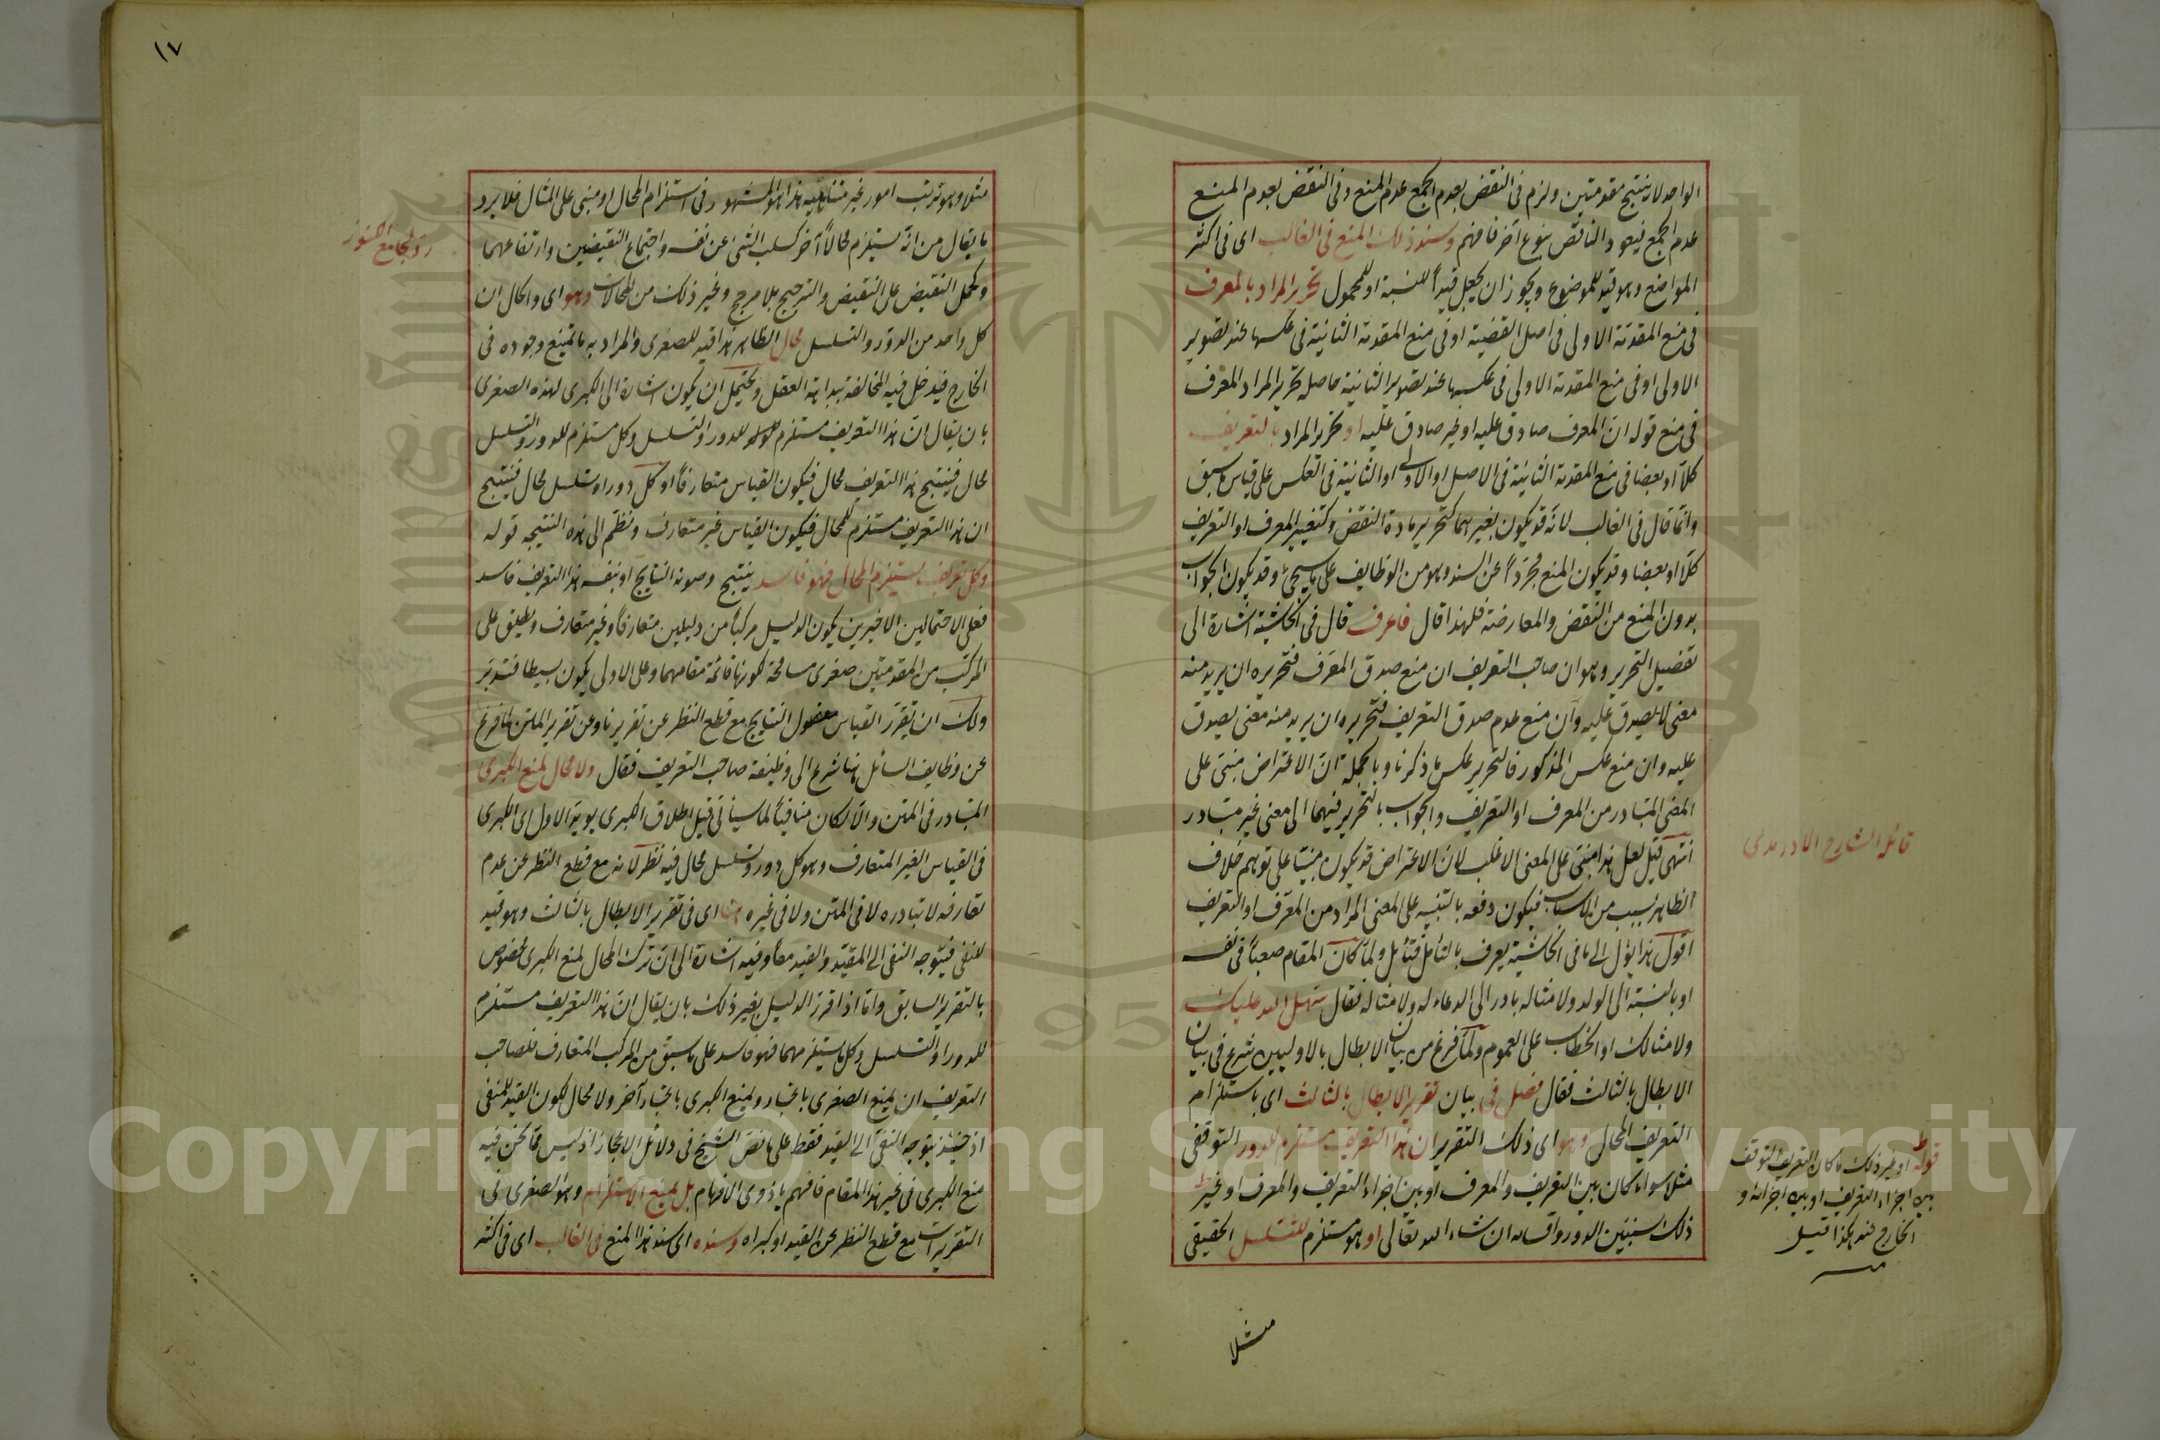 الواحد لا ينتج مقدمتين ولزم فى النقض بعدم الجمع عدم المنع وفى النقض بعدم المنع
عدم الجمع فيعود الناقض بنوع آخر فافهم وسند ذلك المنع فى الغالب اى فى اكثر
المواضع وهو قيد للموضوع ويجوز ان يجعل قيدا للنسبة او للمحمول تحرير المراد بالمعرف
فى منع المقدمة الاولى فى اصل القضية او فى منع المقدمة الثانية فى عكسها عند تصوير
الاولى او فى منع المقدمة الاولى فى عكسها عند تصوير الثانية حاصله تحرير المراد المعرف
فى منع قوله ان المعرف صادق عليه او غير صادق عليه او تحرير المراد بالتعريف
كلا او بعضا فى منع المقدمة الثانية فى الاصل او الاولى او الثانية فى العكس على قياس ما سبق
وانما قال فى الغالب لانه قد يكون بغيرهما كتحرير مادة النقض وكتغيير المعرف او التعريف
كلا او بعضا وقد يكون المنع مجردا عن السند وهو من الوظايف على ما سيجئ وقد يكون الجواب
بدون المنع من النقض والمعارضة فلهذا قال فاعرف قال فى الحاشية اشارة الى
تفصيل التحرير وهو ان صاحب التعريف ان منع صدق المعرف فتحريره ان يريد منه
معنى لا يصدق عليه وان منع عدم صدق التعريف فتحريره ان يريد منه معنى يصدق
عليه وان منع عكس المذكور فالتحرير عكس ما ذكرنا وبالجملة ان الاعتراض مبنى على
المعنى المتبادر من المعرف او التعريف والجواب بالتحرير فيهما الى معنى غير متبادر
انتهى قيل لعل هذا مبنى على المعنى الاغلب لان الاعتراض قد يكون مبنيا على توهم خلاف
الظاهر بسبب من الاسباب فيكون دفعه بالتنبيه على المعنى المراد من المعرف او التعريف
اقول هذا يؤل الى ما فى الحاشية يعرف بالتأمل فتأمل ولما كان المقام صعبا فى نفسه
او بالنسبة الى الولد ولامثاله بادر الى الدعاء له ولامثاله فقال سهل الله عليك
ولامثالك او الخطاب على العموم ولما فرغ من بيان الابطال بالاوليين شرع فى بيان
الابطال بالثالث فقال فصل فى بيان تقرير الابطال بالثالث اى باستلزام
التعريف المحال وهو اى ذلك التقرير ان هذا التعريف مستلزم للدور التوقفى
مثلا سواء كان بين التعريف والمعرف او بين اجزاء التعريف والمعرف او غير
ذلك سنبين الدور واقسامه ان شاء الله تعالى او هو مستلزم للتسلسل الحقيقى
مثلا
قائله الشارح الادرمدى
قوله او غير ذلك ما كان التعريف التوقف
بين اجزاء التعريف او بين اجزائه و
الخارج عنه هكذا قيل
منه
١٧
مثلا وهو ترتب امور غير متناهية هذا هو المشهور فى استلزام المحال او مبنى على المثال فلا يرد
ما يقال من انه يستلزم محالا آخر كسلب الشئ عن نفسه واجتماع النقيضين وارتفاعهما
وكحمل النقيض على النقيض والترجيح بلا مرجح وغير ذلك من المحالات وهو اى والحال ان
كل واحد من الدور والتسلسل محال الظاهر هذا قيد للصغرى والمراد به ما يمتنع وجوده فى
الخارج فيدخل فيه المخالفة بداهة العقل ويحتمل ان يكون اشارة الى الكبرى لهذه الصغرى
بان يقال ان هذا التعريف مستلزم للدور والتسلسل وكل مستلزم للدور والتسلسل
محال فينتج هذا التعريف محال فيكون القياس متعارفا او كل دور او تسلسل محال فينتج
ان هذا التعريف مستلزم للمحال فيكون القياس غير متعارف ونظم الى هذه النتيجة قوله
وكل تعريف يستلزم المحال فهو فاسد ينتج وصونة النتايج او بنفسه هذا التعريف فاسد
فعلى الاحتمالين الاخيرين يكون الدليل مركبا من دليلين متعارفا وغير متعارف ويطلق على
المركب من المقدمتين صغرى مسامحة لكونها قائمة مقامهما وعلى الاولى يكون بسيطا فتدبر
ولك ان تقرر القياس مفصول النتايج مع قطع النظر عن تقريرنا وعن تقرير المتن لما فرغ
عن وظايف السائل هنا شرع الى وظيفة صاحب التعريف فقال ولا مجال لمنع الكبرى
المتبادر فى المتن والا لكان منافيا لما سيأتى قيل اطلاق الكبرى يؤيد الاول اى الكبرى
فى القياس الغير المتعارف وهو كل دور وتسلسل محال فيه نظر لانه مع قطع النظر عن عدم
تعارفه لا تبادره لا فى المتن ولا فى غيره هنا اى فى تقرير الابطال بالثالث وهو قيد
للنفى فيتوجه النفى الى المقيد والقيد معا وفيه اشارة الى ان ترك المجال لمنع الكبرى مخصوص
بالتقرير السابق واما اذا قرر الدليل بغير ذلك بان يقال ان هذا التعريف مستلزم
للدور او التسلسل وكل ما يستلزمهما فهو فاسد على ما سبق من المركب المتعارف فلصاحب
التعريف ان يمنع الصغرى باعتبار ويمنع الكبرى باعتبار آخر ولا مجال لكون القيد للمنفى
اذ حينئذ يتوجه النفى الى القيد فقط على ما نص الشيخ فى دلائل الاعجاز اذ ليس مما نحن فيه
منع الكبرى فى غير هذا المقام فافهم يا ذوى الافهام بل يمنع الاستلزام وهو الصغرى فى
التقريرات مع قطع النظر عن القيد او كبراه وسنده اى سند هذا المنع فى الغالب اى فى اكثر
رد لجامع الكنوز